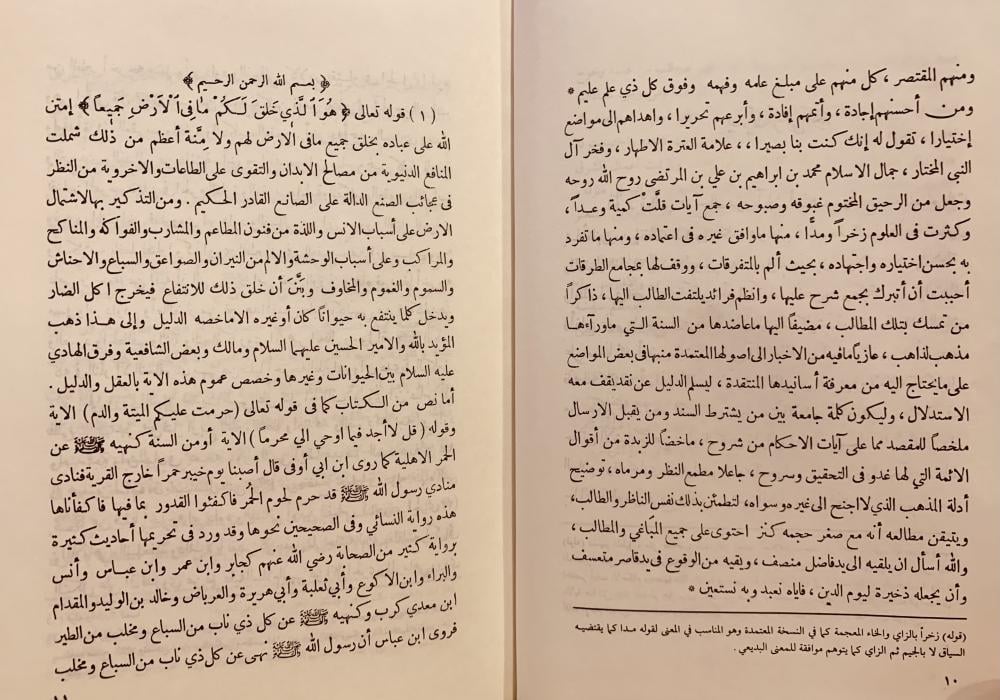 ومنهم المقتصر، كل منهم على مبلغ علمه وفهمه وفوق كل ذي علم عليم *
ومن أحسنهم إجادة، وأتمهم إفادة، وأبرعهم تحريرا، واهداهم الى مواضع
إختيارا، تقول له إنك كنت بنا بصيرا،، علامة العترة الاطهار، وفخر آل
النبي المختار، جمال الاسلام محمد بن ابراهيم بن علي بن المرتضى روح الله روحه
وجعل من الرحيق المختوم غبوقه وصبوحه، جمع آيات قلَّت كمية وعداً،
وكثرت فى العلوم زخراً ومدًّا، منها ماوافق غيره فى اعتماده، ومنها ما تفرد
به بحسن اختياره واجتهاده، بحيث ألم بالمتفرقات، ووقف لها بمجامع الطرقات
أحببت أن أتبرك بجمع شرح عليها، وانظم فرائد يلتفت الطالب اليها، ذاكراً
من تمسك بتلك المطالب، مضيفاً اليها ماعاضدها من السنة التي ماوراءها
مذهب لذاهب، عازياً مافيه من الاخبار الى اصولها المعتمدة منبها فى بعض المواضع
على مايحتاج اليه من معرفة أسانيدها المنتقدة، ليسلم الدليل عن نقد يقف معه
الاستدلال، وليكون كلمة جامعة بين من يشترط السند ومن يقبل الارسال
ملخصاً للمقصد مما على آيات الاحكام من شروح، ماخضاً للزبدة من أقوال
الائمة التي لها غدو فى التحقيق وسروح، جاعلا مطمع النظر ومرماه، توضيح
أدلة المذهب الذي لا اجنح الى غيره وسواه، لتطمئن بذلك نفس الناظر والطالب،
ويتيقن مطالعه أنه مع صغر حجمه كنز احتوى على جميع المباغي والمطالب،
والله أسأل ان يلقيه الى يد فاضل منصف، ويقيه من الوقوع فى يد قاصر متعسف
وأن يجعله ذخيرة ليوم الدين، فاياه نعبد وبه نستعين *
(قوله) زخراً بالزاي والخاء المعجمة كما فى النسخة المعتمدة وهو المناسب في المعنى لقوله مدا كما يقتضيه
السياق لا بالجيم ثم الزاي كما يتوهم موافقة للمعنى البديعي .
١٠
﴿ بسم الله الرحمن الرحيم ﴾
(١) قوله تعالى ﴿ هُوَ الَّذِي خَلَقَ لَكُمْ مَافِي الْأَرْضِ جَمِيعاً ﴾ إمتن
الله على عباده بخلق جميع مافى الارض لهم ولا مِنَّة أعظم من ذلك شملت
المنافع الدنيوية من مصالح الابدان والتقوى على الطاعات والاخروية من النظر
فى عجائب الصنع الدالة على الصانع القادر الحكيم . ومن التذكير بها لاشتمال
الارض على أسباب الانس واللذة من فنون المطاعم والمشارب والفواكه والمناكح
والمراكب وعلى أسباب الوحشة والالم من النيران والصواعق والسباع والاحناش
والسموم والغموم والمخاوف وبَيَّنَ أن خلق ذلك للانتفاع فيخرج اكل الضار
ويدخل كلما ينتفع به حيواناً كان أوغيره الاماخصه الدليل وإلى هذا ذهب
المؤيد بالله والامير الحسين عليهما السلام ومالك وبعض الشافعية وفرق الهادي
عليه السلام بين الحيوانات وغيرها وخصص عموم هذه الاية بالعقل والدليل .
أما نص من الكتاب كما فى قوله تعالى (حرمت عليكم الميتة والدم) الاية
وقوله (قل لا أجد فيما اوحي الي محرماً) الاية أومن السنة كنهيه ﷺ عن
الحمر الاهلية كما روى ابن ابي أوفى قال أصبنا يوم خيبر حمراً خارج القرية فنادى
منادي رسول الله ﷺ قد حرم لحوم الحُمر فاكفئوا القدور بما فيها فاكفأناها
هذه رواية النسائي وفى الصحيحين نحوها وقد ورد فى تحريمها أحاديث كثيرة
برواية كثير من الصحابة رضي الله عنهم كجابر وابن عمر وابن عباس وأنس
والبراء وابن الاكوع وأبي ثعلبة وأبي هريرة والعرباض وخالد بن الوليد والمقدام
ابن معدي كرب وكنهيه ﷺ عن كل ذي ناب من السباع ومخلب من الطير
فروى ابن عباس أن رسول الله ﷺ نهى عن كل ذي ناب من السباع ومخلب